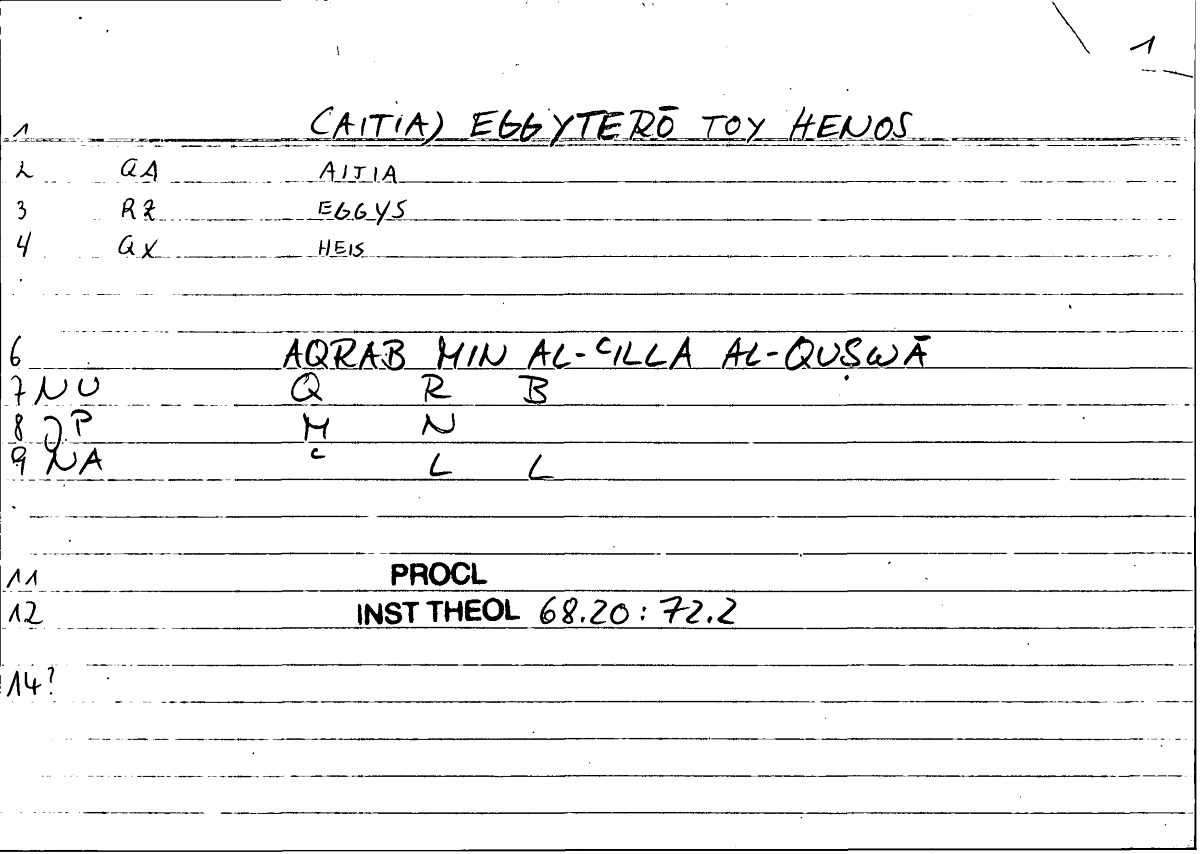 1
1 (AITIA) EGGYTERŌ TOY HENOS
2 QA AITIA
3 RZ EGGYS
4 QX HEIS
6 AQRAB MIN AL-ʿILLA AL-QUṢWĀ
7 NU Q R B
8 JP M N
9 NA ʿ L L
11 PROCL
12 INST THEOL 68.20 : 72.2
14?